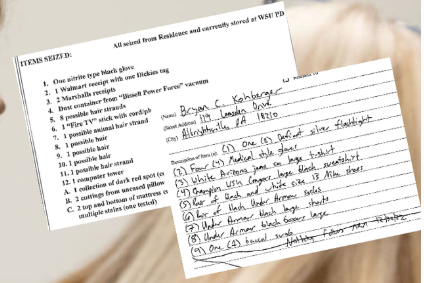 ITEMS SEIZED:
All seized from Residence and currently stored at WSU PD
1. One nitrite type black glove
2. 1 Walmart receipt with one Dickies tag
3. 2 Marshalls receipts
4. Dust container from "Bissell Power Force" vacuum
5. 8 possible hair strands
6. 1 "Fire TV" stick with cord/plug
7. 1 possible animal hair strand
8. 1 possible hair
9. 1 possible hair
10. 1 possible hair
11. 1 possible hair strand
12. 1 computer tower
A. 1 collection of dark red spot
B. 2 cuttings from uncased pillow
C. 2 top and bottom of mattress
multiple stains (one tested)
(Name) Bryan C. Kohberger
(Street Address) 119 Lamsden Drive
(City) Albrightsville PA 18210
Description of Item (s)
(1) One (1) Defiant silver flashlight
(2) Four (4) Medical style gloves
(3) White Arizona Jean Co large t-shirt
(4) Champion WSU Cougar large black sweatshirt
(5) Pair of black and white size 13 Nike shoes
(6) Pair of black Under Armour socks
(7) Under Armour black large shorts
(8) Under Armour black boxers large
(9) One (1) buccal swab
Nothing